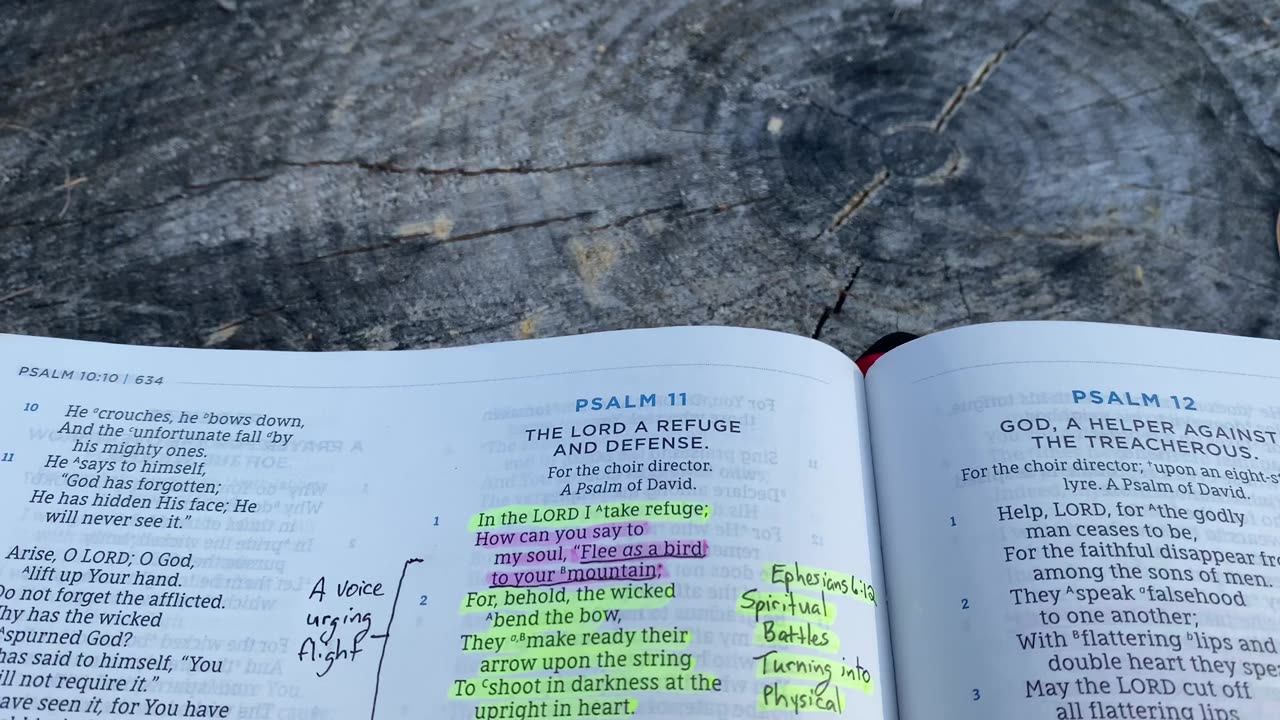 PSALM 10:10 | 634
10 He ᵃcrouches, he ᵇbows down,
And the ᶜunfortunate fall ᵈby
his mighty ones.
11 He ᴬsays to himself,
"God has forgotten;
He has hidden His face; He
will never see it."
Arise, O LORD; O God,
ᴬlift up Your hand.
Do not forget the afflicted.
Why has the wicked
ᴬspurned God?
has said to himself, "You
will not require it."
have seen it, for You have
A voice
urging
flight
PSALM 11
THE LORD A REFUGE
AND DEFENSE.
For the choir director.
A Psalm of David.
1 In the LORD I ᴬtake refuge;
How can you say to
my soul, "Flee as a bird
to your ᴮmountain;
2 For, behold, the wicked
ᴬbend the bow,
They ᵃ,ᴮmake ready their
arrow upon the string
To ᶜshoot in darkness at the
upright in heart.
Ephesians 6:12
Spiritual
Battles
Turning into
Physical
PSALM 12
GOD, A HELPER AGAINST
THE TREACHEROUS.
For the choir director; †upon an eight-s
lyre. A Psalm of David.
1 Help, LORD, for ᴬthe godly
man ceases to be,
For the faithful disappear fro
among the sons of men.
2 They ᴬspeak ᵃfalsehood
to one another;
With ᴮflattering ᵇlips and
double heart they spe
3 May the LORD cut off
all flattering lips